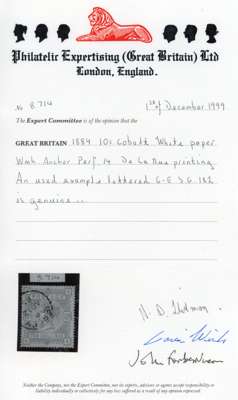 Philatelic Expertising (Great Britain) Ltd
London, England.
No 8714
1st of December 1999
The Expert Committee is of the opinion that the
GREAT BRITAIN 1884 10s Cobalt White paper
Wmk Anchor Perf 14 De La Rue printing
An used example lettered G-E SG 182
is genuine...
8714
Neither the Company, nor the Expert Committee, nor its experts, advisers or agents accept responsibility or
liability individually or collectively for any loss suffered as a result of any opinion expressed.